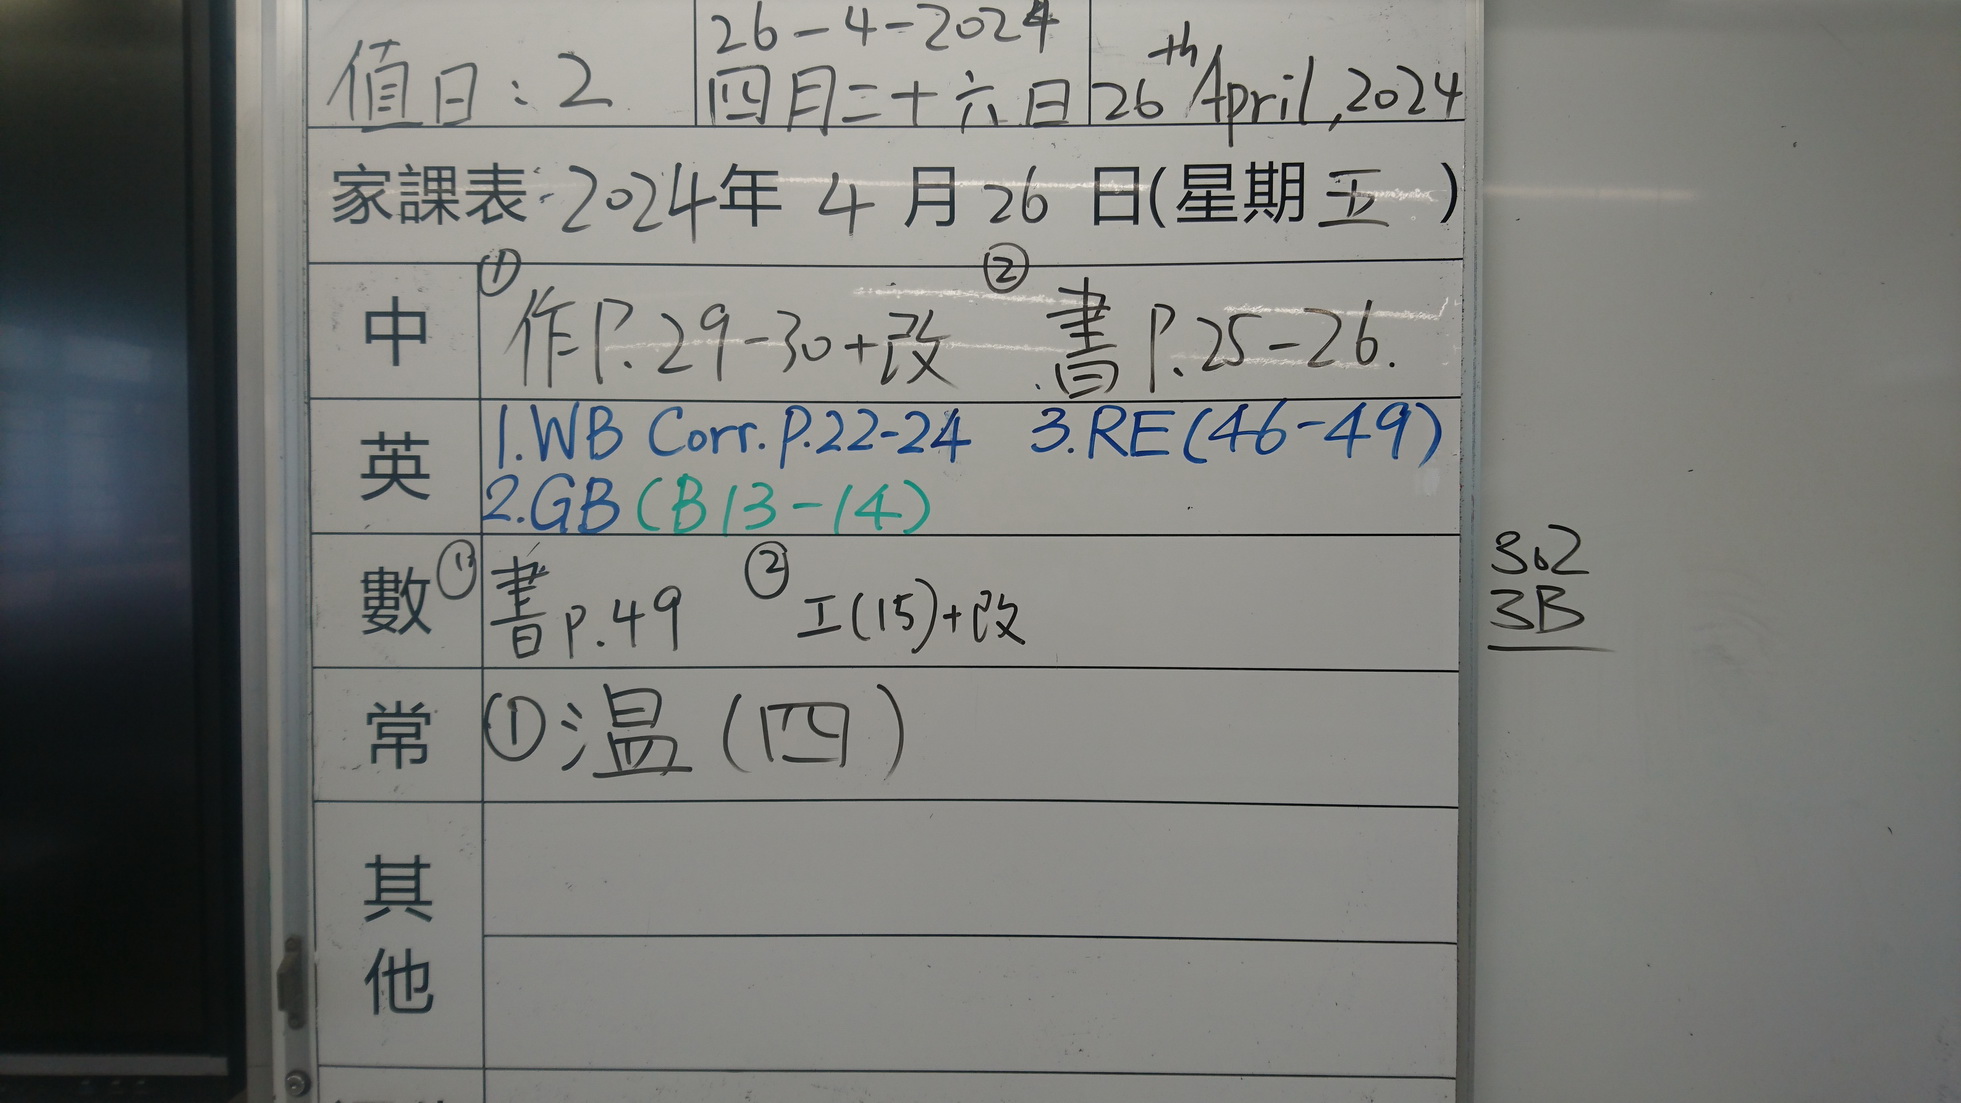 值日：2
26-4-2024
四月二十六日
26th April, 2024
家課表：2024年 4 月 26 日(星期 五 )
中 ① 作P.29-30+改 ② 書 P.25-26.
英 1.WB Corr. P.22-24 3.RE(46-49)
2.GB (B13-14)
數 ① 書 p.49 ② 工(15)+改
常 ① 溫(四)
其他
3.2
3B